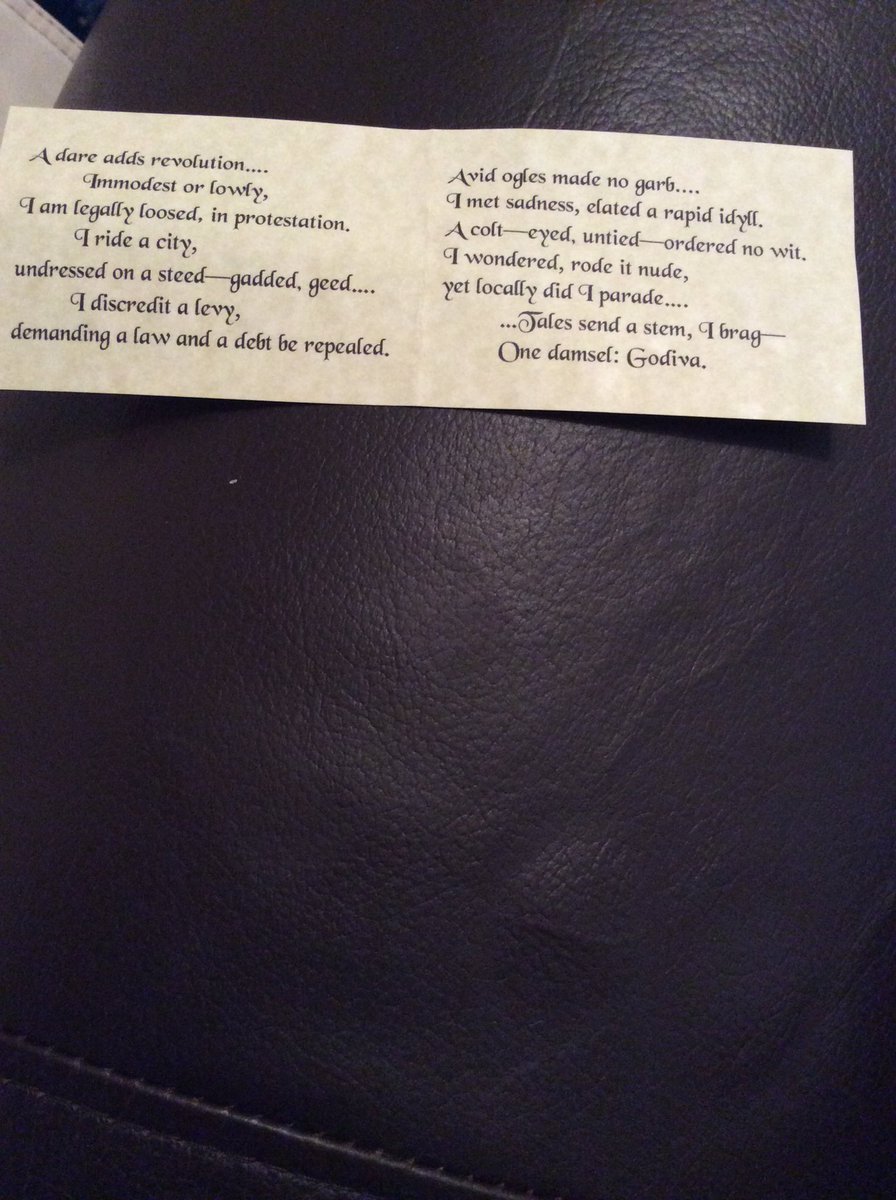 A dare adds revolution....
Immodest or lowly,
I am legally loosed, in protestation.
I ride a city,
undressed on a steed—gadded, geed....
I discredit a levy,
demanding a law and a debt be repealed.
Avid ogles made no garb....
I met sadness, elated a rapid idyll.
A colt—eyed, untied—ordered no wit.
I wondered, rode it nude,
yet locally did I parade....
...Tales send a stem, I brag—
One damsel: Godiva.